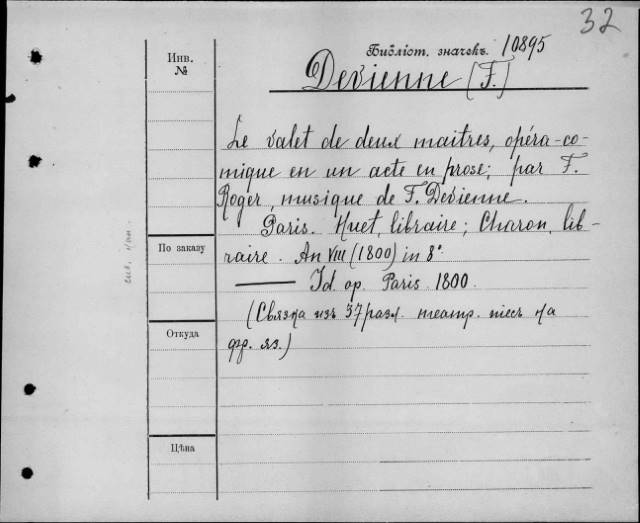 32
Библіот. значекъ. 10895
Инв.
№
Devienne (F.)
Le valet de deux maitres, opéra-co-
mique en un acte en prose; par F.
Roger, musique de F. Devienne.
Paris. Huet, libraire; Charon, lib-
raire. An VIII (1800) in 8°
По заказу
—— Id. op. Paris 1800.
(Связка изъ 37 разл. театр. пiес на
Откуда
фр. яз.)
Цѣна